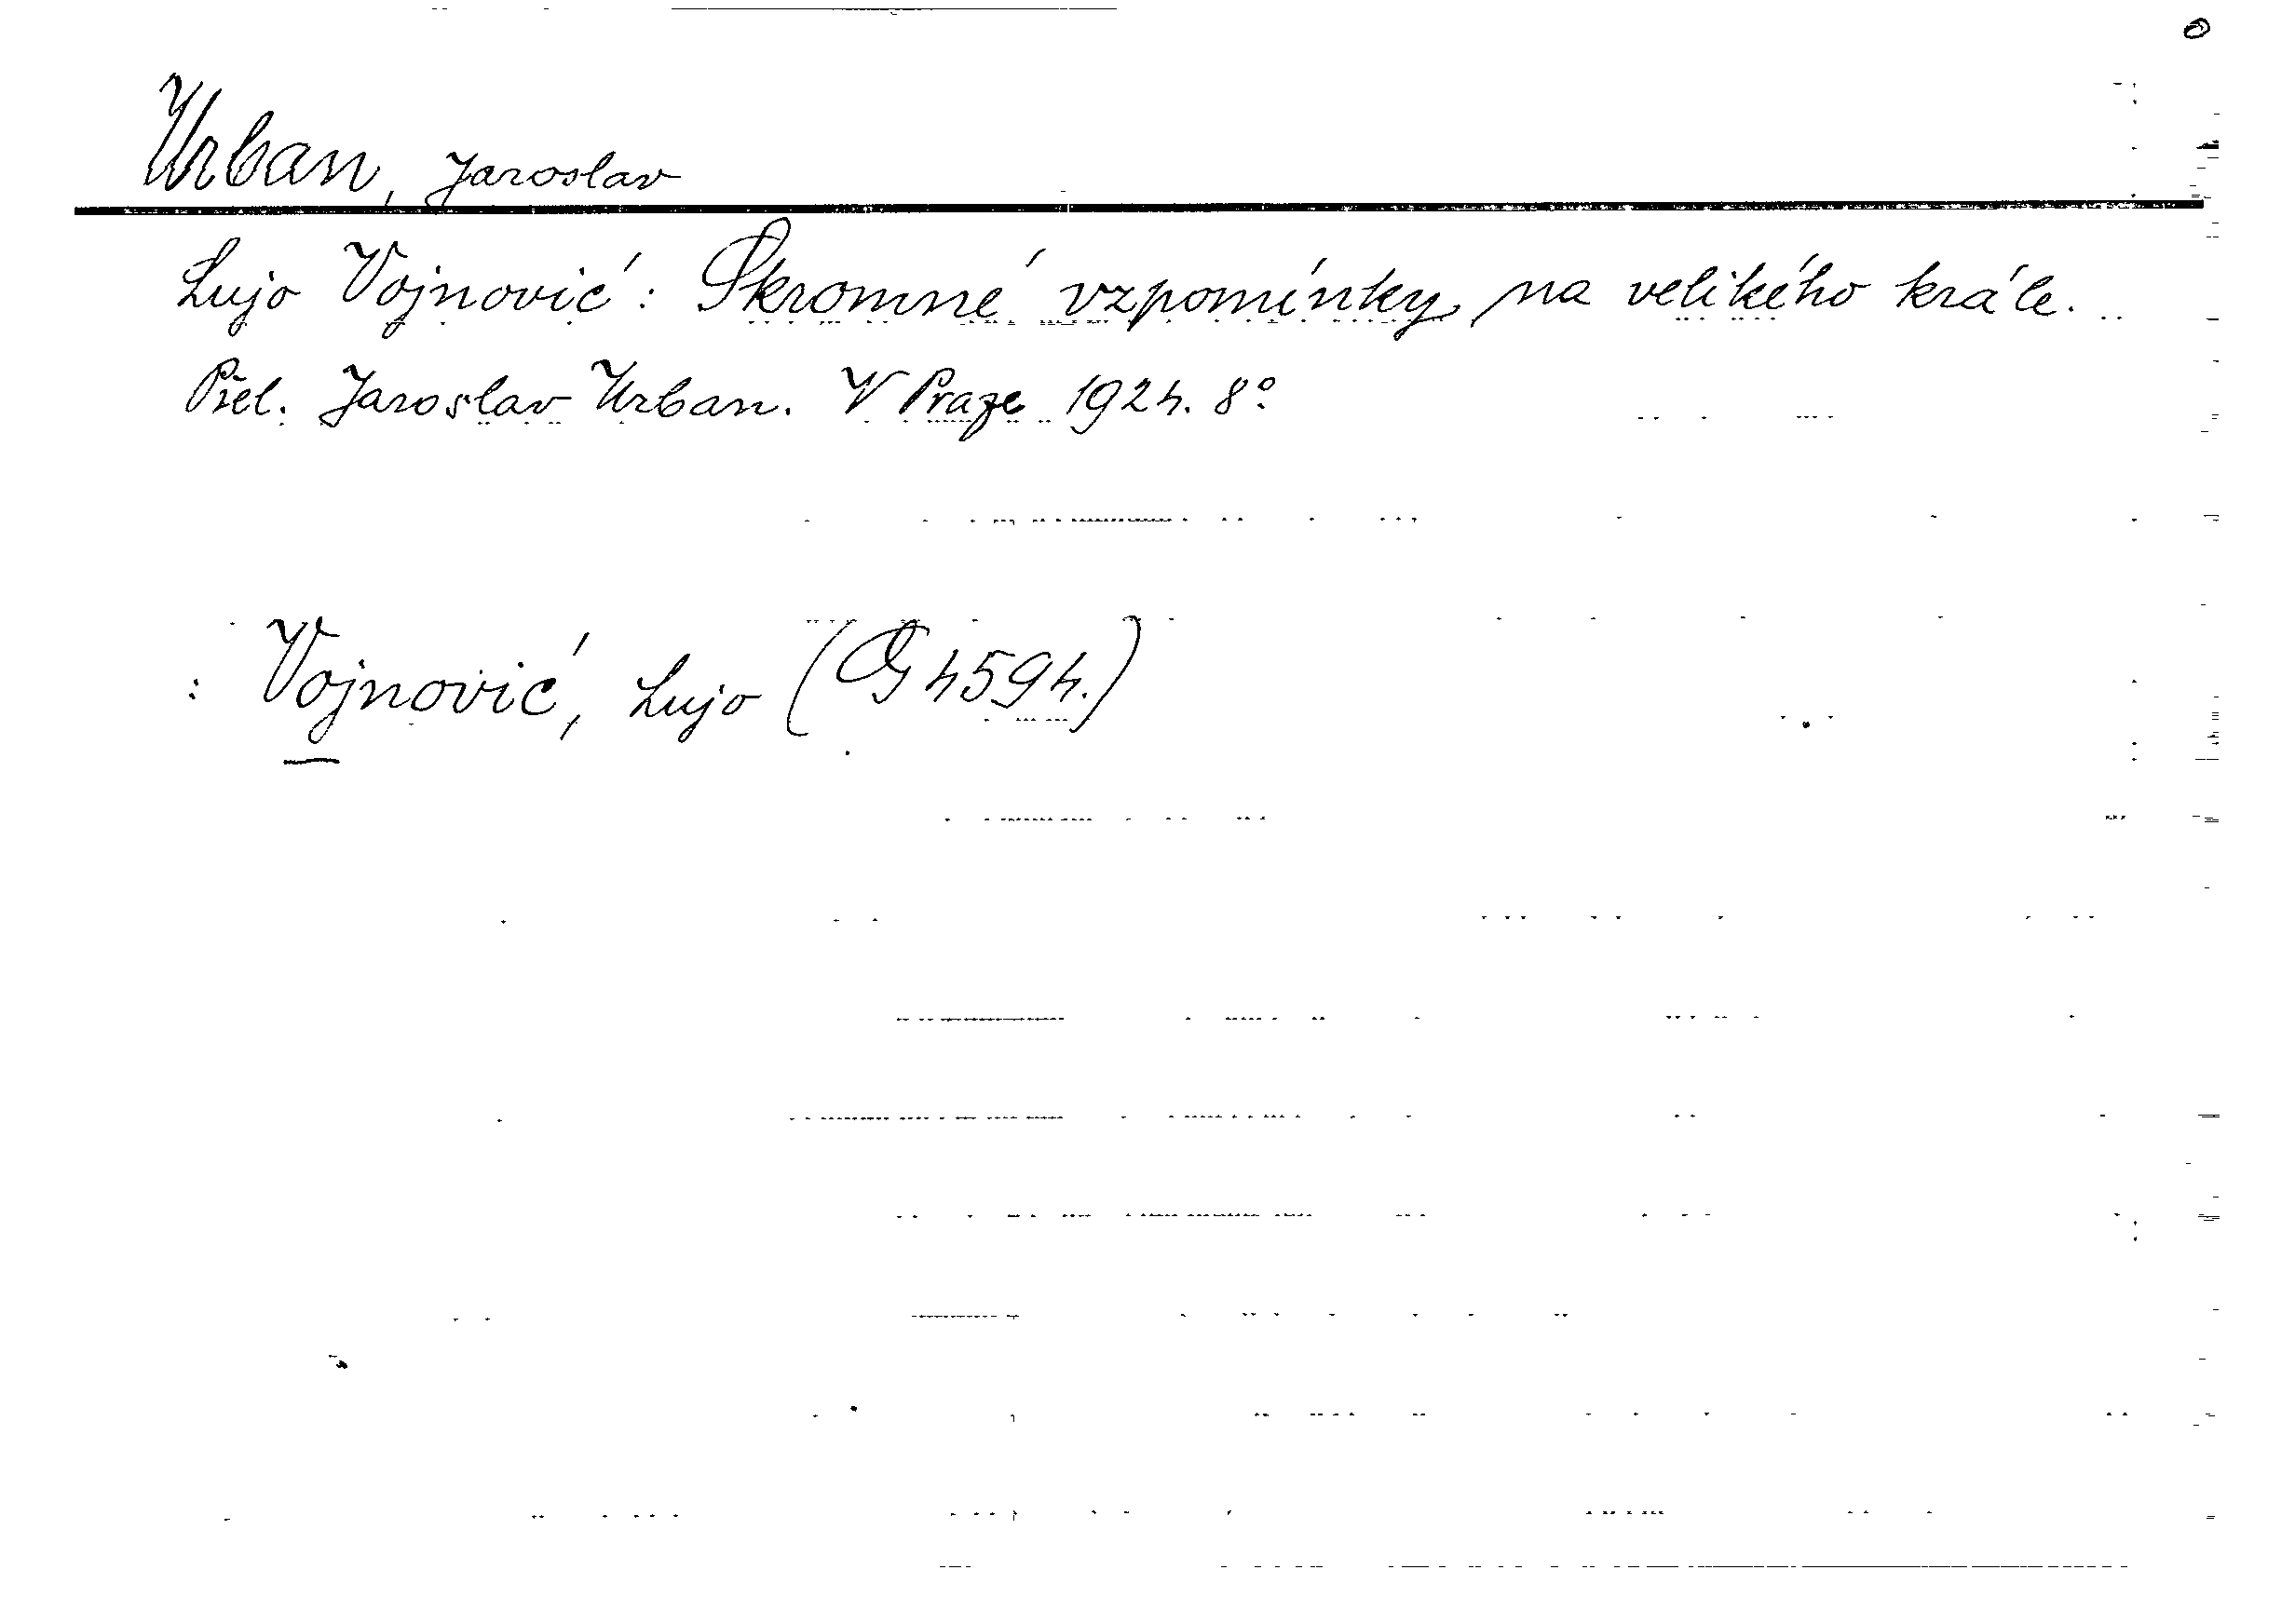 Urban, Jaroslav
Lujo Vojnović: Skromné vzpomínky na velikého krále.
Přel. Jaroslav Urban. V Praze 1924. 8°
: Vojnović, Lujo (G 4594.)